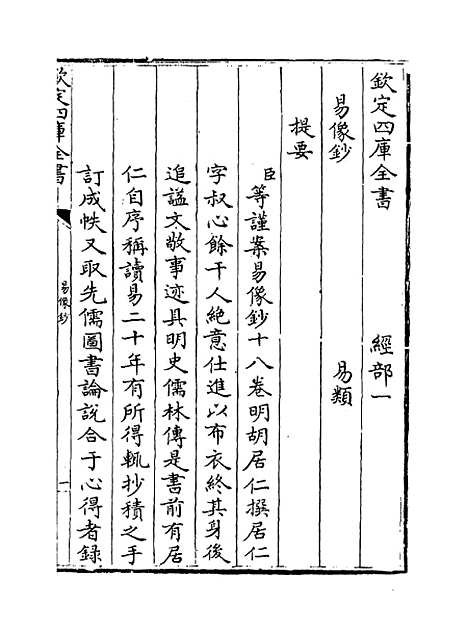 欽定四庫全書　經部一
易像鈔　易類
提要
臣等謹案易像鈔十八卷明胡居仁撰居仁
字叔心餘干人絶意仕進以布衣終其身後
追謚文敬事迹具明史儒林傳是書前有居
仁自序稱讀易二十年有所得輒抄積之手
訂成帙又取先儒圖書論說合于心得者錄
欽定四庫全書
易像鈔
一